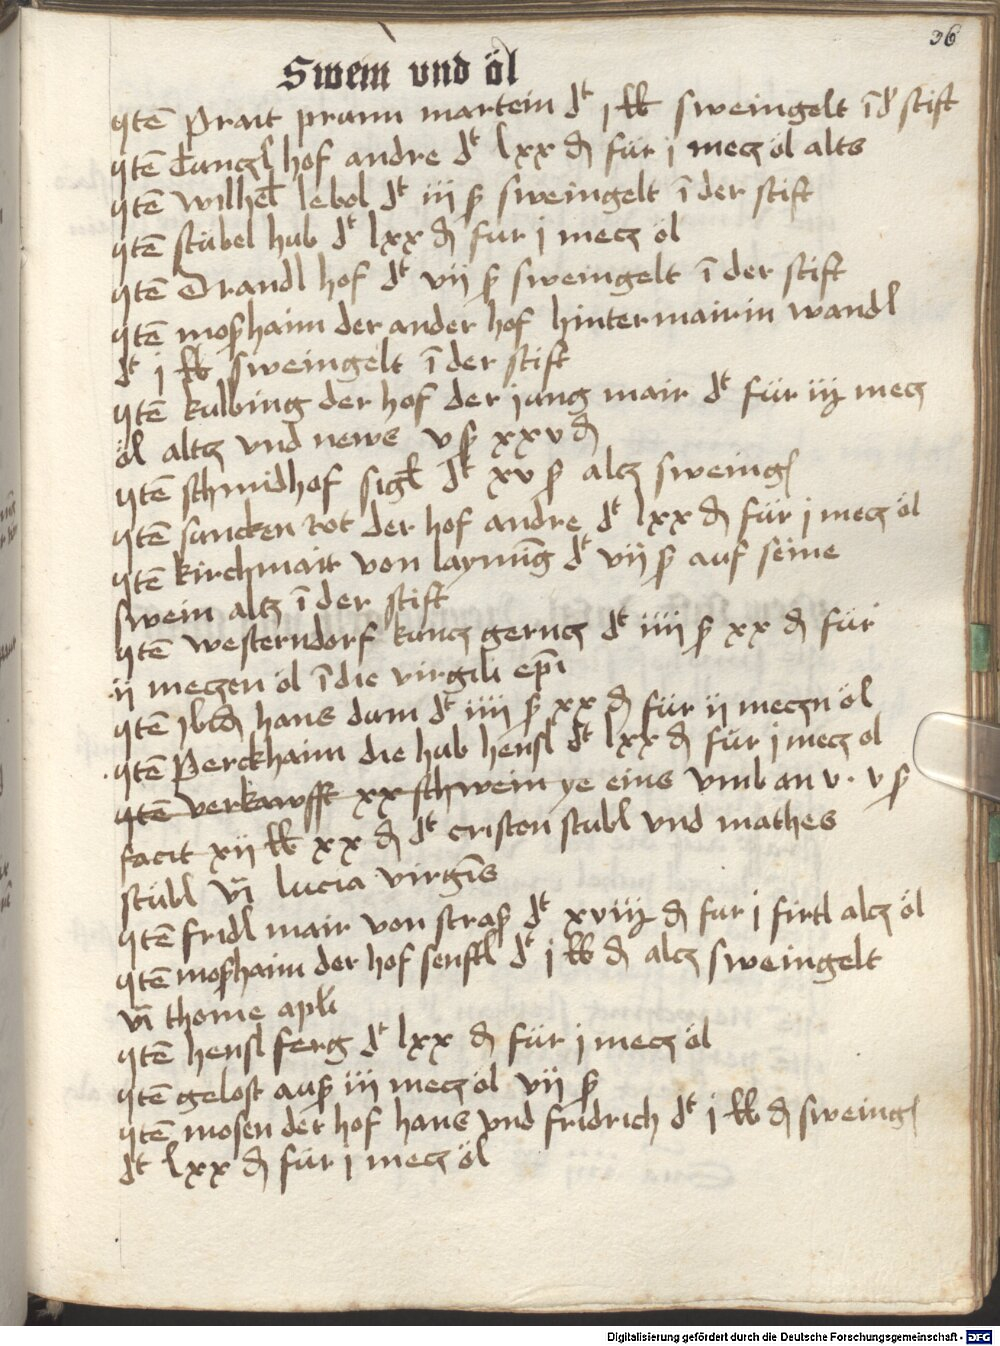 36
Swein vnd öl
Itē Prait prunn martein dt j lb sweingelt ī d' stift
Itē Tanczl hof andre dt lxx d für j mecz öl alts
Itē wilhel lebol dt iij ß sweingelt ī der stift
Itē stübel hub dt lxx d fur j mecz öl
Itē Drandl hof dt vij ß sweingelt ī der stift
Itē moßhaim der ander hof hintermairin wandl
dt j lb sweingelt ī der stift
Itē kulbing der hof der jung mair dt für iij mecz
öl altz vnd news v ß xxv d
Itē schmidhof sigl dt xv ß altz sweing
Itē suncken rot der hof andre dt lxx d für j mecz öl
Itē kirchmair von laymīg dt vij ß auf seine
swein altz ī der stift
Itē westerndorf kuncz gerncz dt iiij ß xx d für
ij meczen öl ī die virgili epī
Itē ibid hans dum dt iiij ß xx d für ij meczn öl
Itē Perckhaim die hub hensl dt lxx d für j mecz öl
Itē verkawfft xx schwein ye eins vmb an v · v ß
facit xij lb xx d dt criston stubl vnd mathes
stübl vī lucia virgīs
Itē fridl mair von straß dt xviij d fur j firtl altz öl
Itē moßhaim der hof senftl dt j lb d altz sweingelt
vī thome apli
Itē hensl ferg dt lxx d für j mecz öl
Itē gelost auß iij mecz öl vij ß
Itē mosen der hof hans vnd fridrich dt j lb d sweing
dt lxx d für j mecz öl
Digitalisierung gefördert durch die Deutsche Forschungsgemeinschaft - DFG